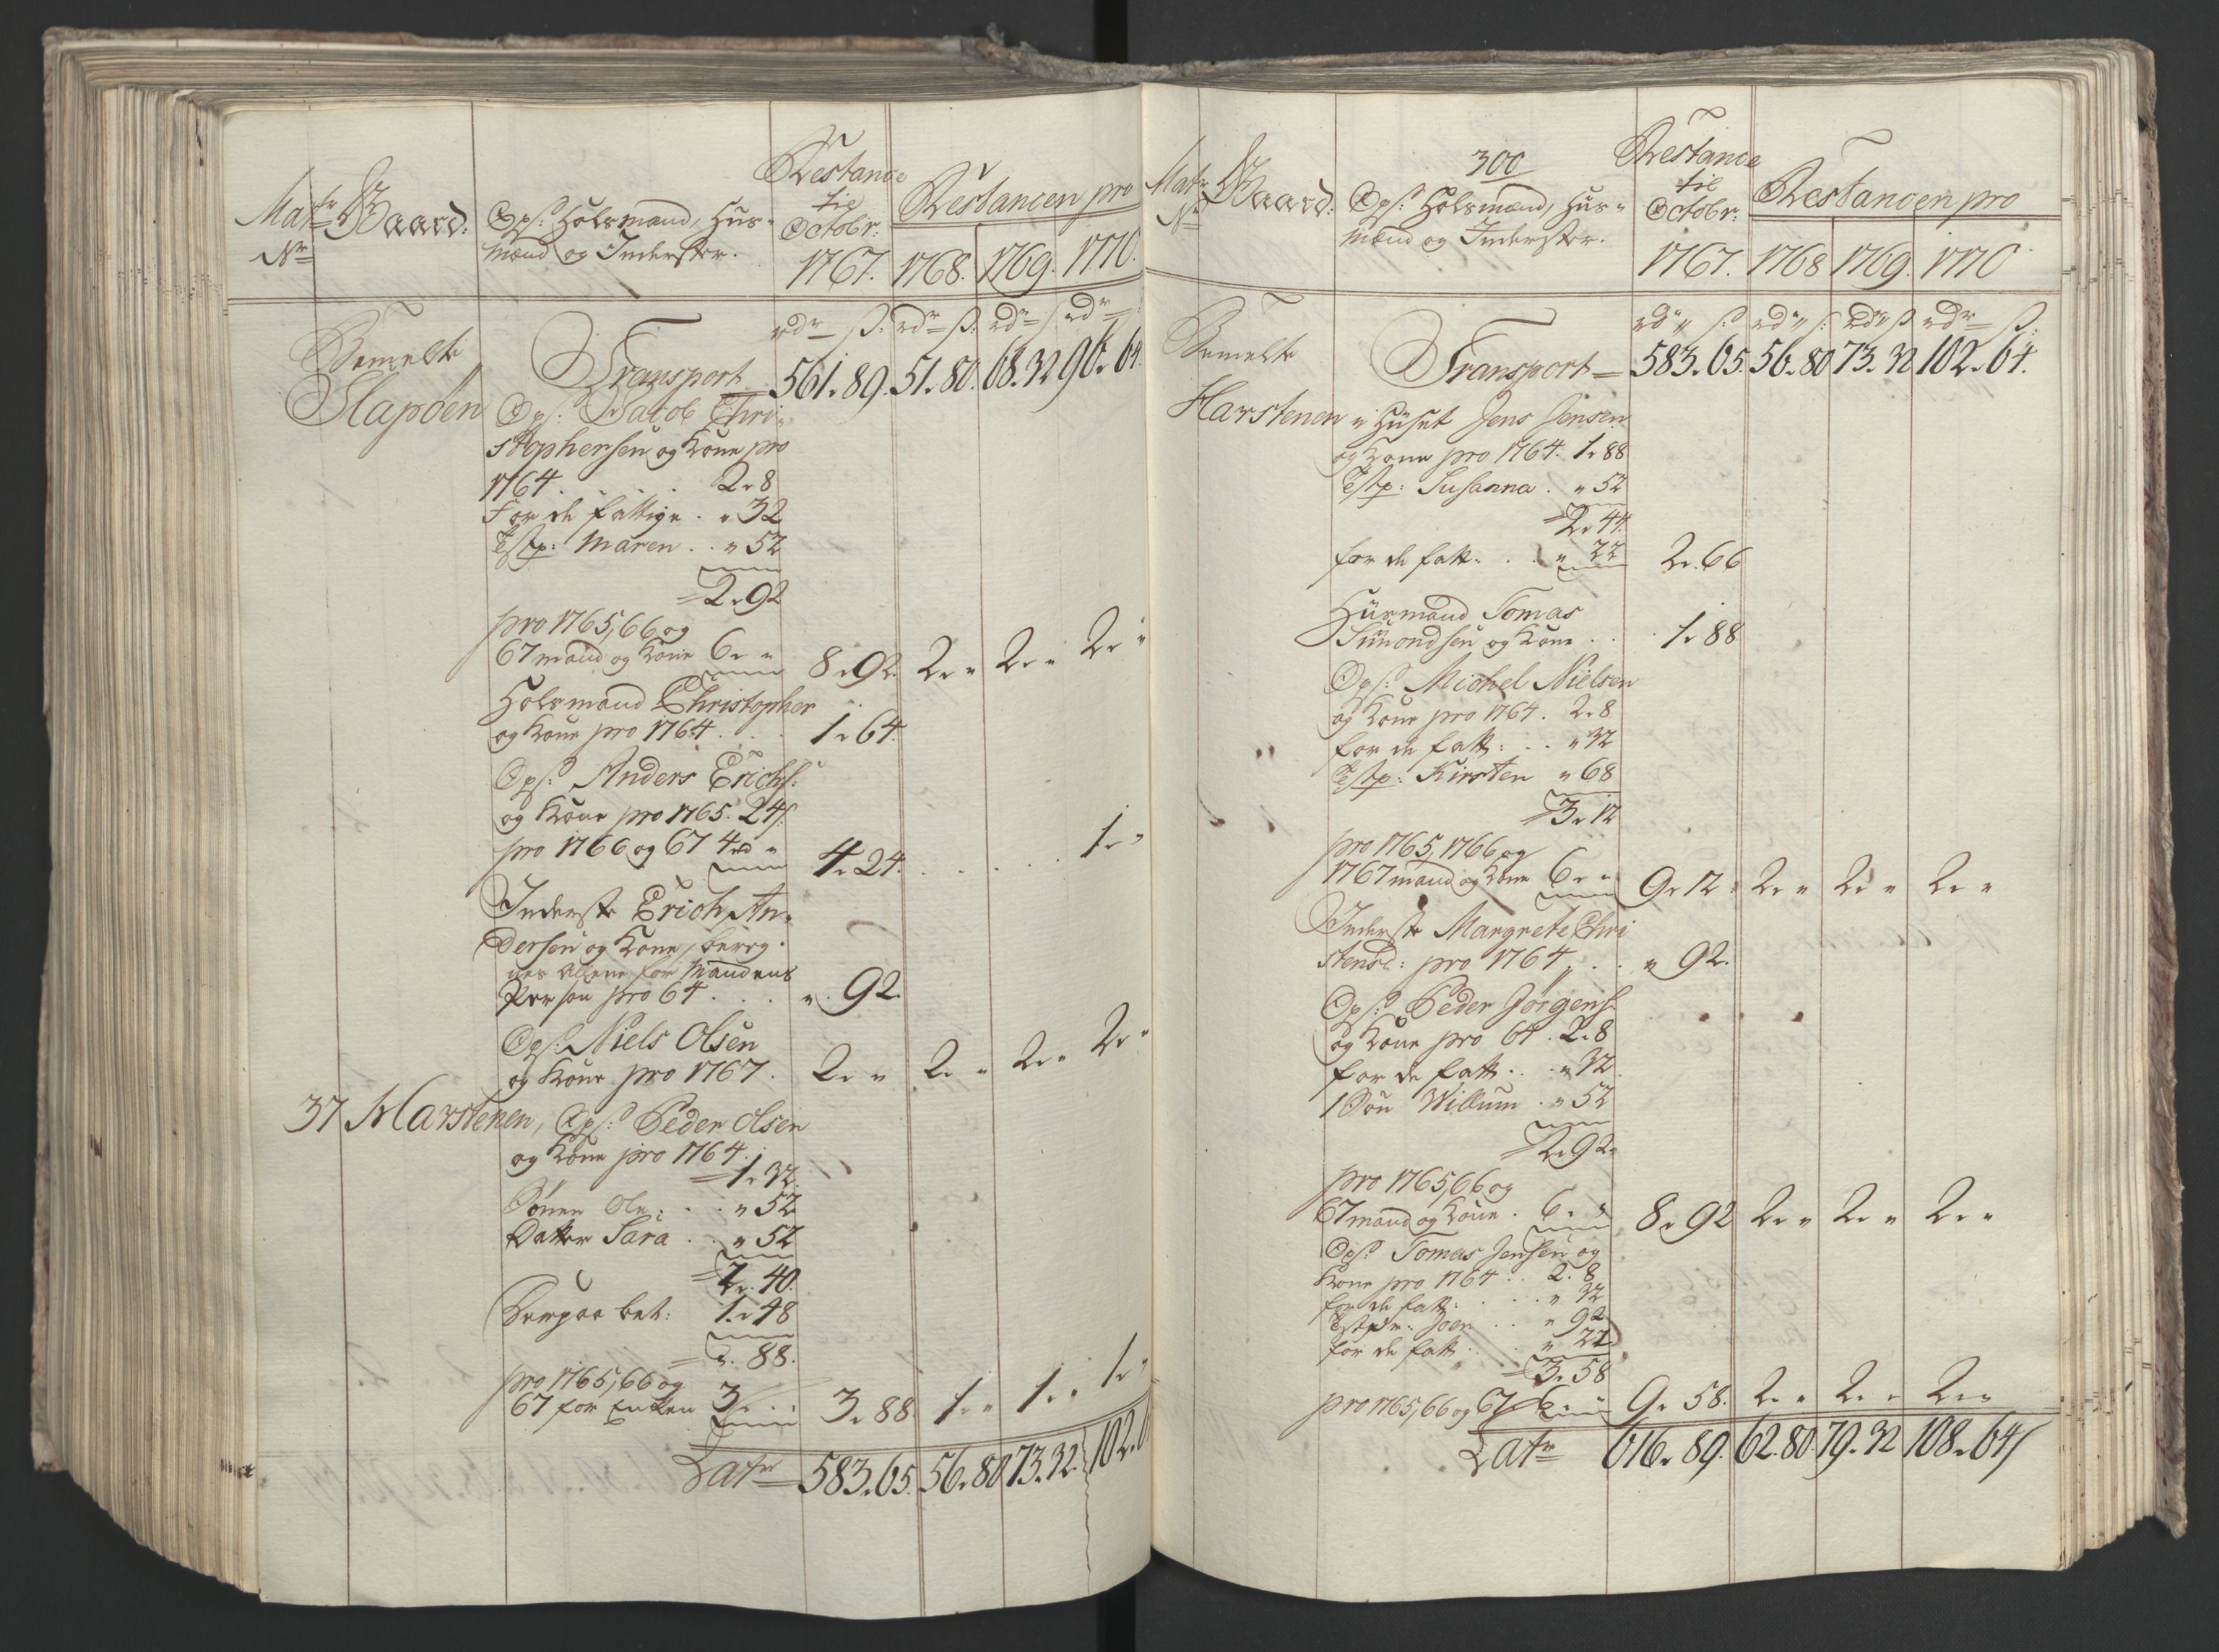 Matr Nr
Gaard.
Ops: Holsmænd, Huus-
mænd og Inderster.
Restance til Octobr: 1767.
Restancen pro
1768. 1769. 1770.
rdr ß. rdr ß. rdr ß rdr
Bemelte Transport 561.89. 51.80. 68.32 96.64.
Slapøen Ops: Jacob Chri-
stophersen og Kone pro
1764 . . . 2.8
For de fattige . " 32
Estp: Maren . . " 52
2.92
pro 1765, 66 og
67 mand og Kone 6. " 8.92. 2. " 2. " 2. "
Holsmand Christopher
og Kone pro 1764 . . . 1.64.
Ops: Anders Erichs:
og Kone pro 1765. 24ß.
pro 1766 og 67 4rd " 4.24. . . . . 1. "
Inderste Erich An-
dersen og Kone,
allene for Mandens
Person pro 64 . . . " 92.
Ops: Niels Olsen
og Kone pro 1767 . 2. " 2. " 2. " 2. "
37 Harstenen, Ops: Peder Olsen
og Kone pro 1764.
1.32.
Sønen Ole . . " 52
Datter Sara . . " 52
2.40.
Derpaa bet: 1.48
". 88.
pro 1765, 66 og
67 for Enken 3. " 3.88 1. " 1. " 1. "
Latr 583.65. 56.80 73.32. 102.6
300
Matr Nr
Gaard.
Ops: Holsmænd, Huus-
mænd og Inderster.
Restance til Octobr: 1767.
Restancen pro
1768 1769. 1770
rdr ß rdr ß rdr ß rdr ß.
Bemelte Transport 583.65. 56.80 73.32 102.64.
Harstenen " Huset Jens Jensen
og Kone pro 1764. 1.88
Estp: Susanna . " 52
2.44.
for de fatt: . . " 22 2.66
Huusmand Tomas
Simondsen og Kone . . 1.88
Ops: Michel Nielsen
og Kone pro 1764 . 2.8
for de fatt: . . " 32
Estp: Kirsten " 68
3.12
pro 1765, 1766 og
1767 mand og Kone 6. " 9.12 2. " 2. " 2. "
Inderste Margrete Chri
stensd: pro 1764 . . " 92.
Ops: Peder Jørgens:
og Kone pro 64 . 2.8
for de fatt . . " 32
1 Søn Willum . " 52
2.92.
pro 1765, 66 og
67 mand og Kone . 6. " 8.92 2. " 2. " 2. "
Ops: Tomas Jensen og
Kone pro 1764 . . 2.8
for de fatt: . . . " 32
Joen . . " 92
for de fatt . . " 22
3.58
pro 1765, 66 og 67 6. " 9.58. 2. " 2. " 2. "
Latr 616.89. 62.80 79.32 108.64